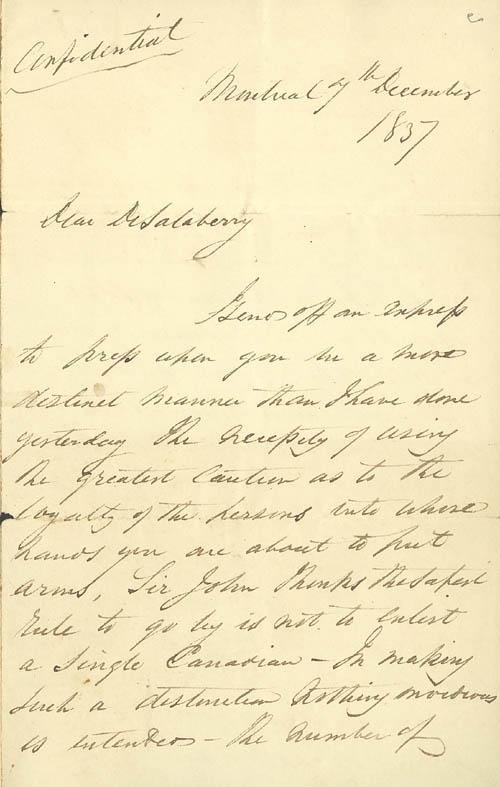 Confidential
Montreal 7th December
1837
Dear DeSalaberry
I send off an express
to press upon you in a more
distinct manner than I have done
yesterday the necessity of using
the greatest caution as to the
loyalty of the persons into whose
hands you are about to put
arms, Sir John thinks the safest
rule to go by is not to enlist
a single Canadian – In making
such a distinction nothing invidious
is intended – The number of